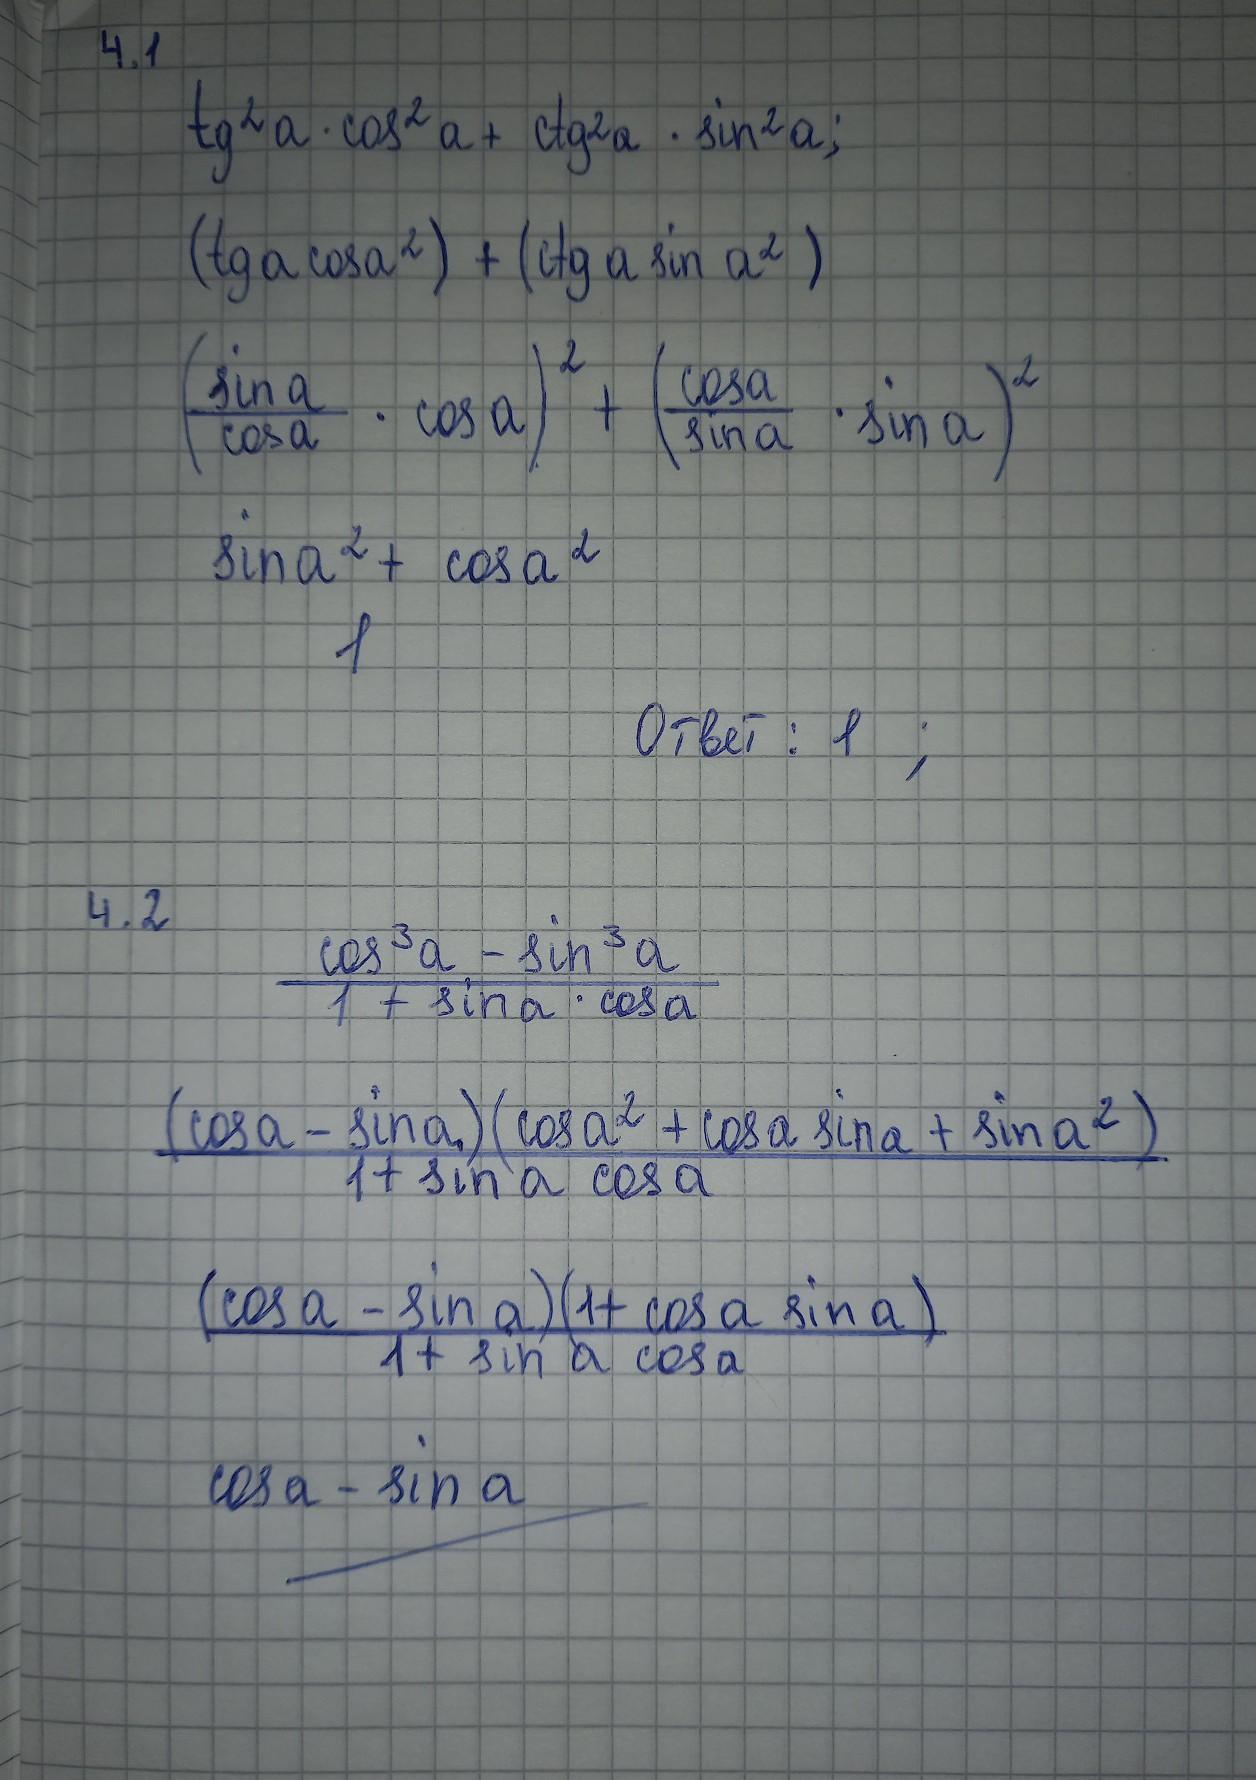 4.1
tg²a · cos²a + ctg²a · sin²a;
(tg a cos a²) + (ctg a sin a²)
(sin a / cos a · cos a)² + (cos a / sin a · sin a)²
sin a² + cos a²
1
Ответ: 1 ;
4.2
cos³a - sin³a
1 + sin a · cos a
(cos a - sin a)(cos a² + cos a sin a + sin a²)
1 + sin a cos a
(cos a - sin a)(1 + cos a sin a)
1 + sin a cos a
cos a - sin a